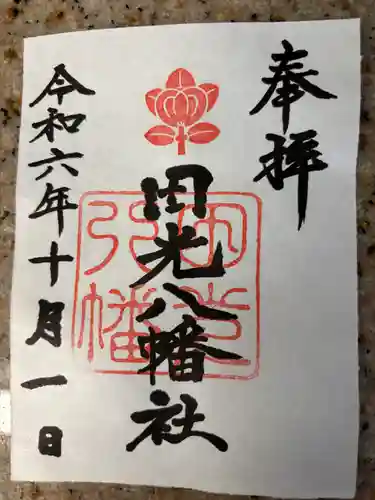 奉拝
田光八幡社
田光八幡
令和六年十月一日